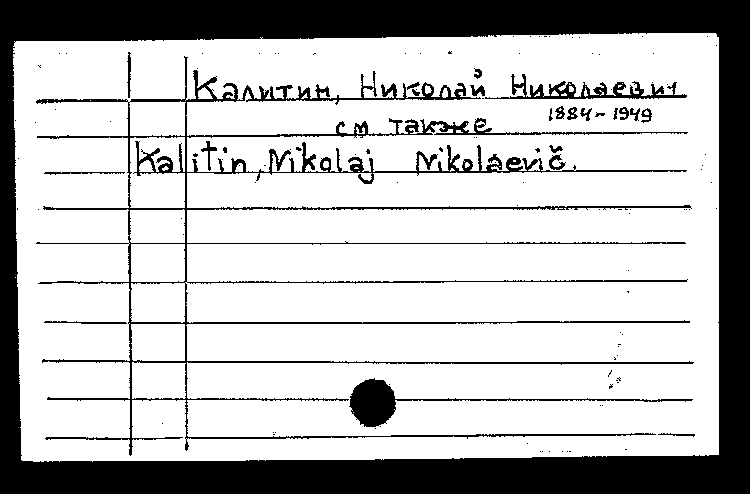 Калитин, Николай Николаевич
1884-1949
см также
Kalitin, Nikolaj Nikolaevič.